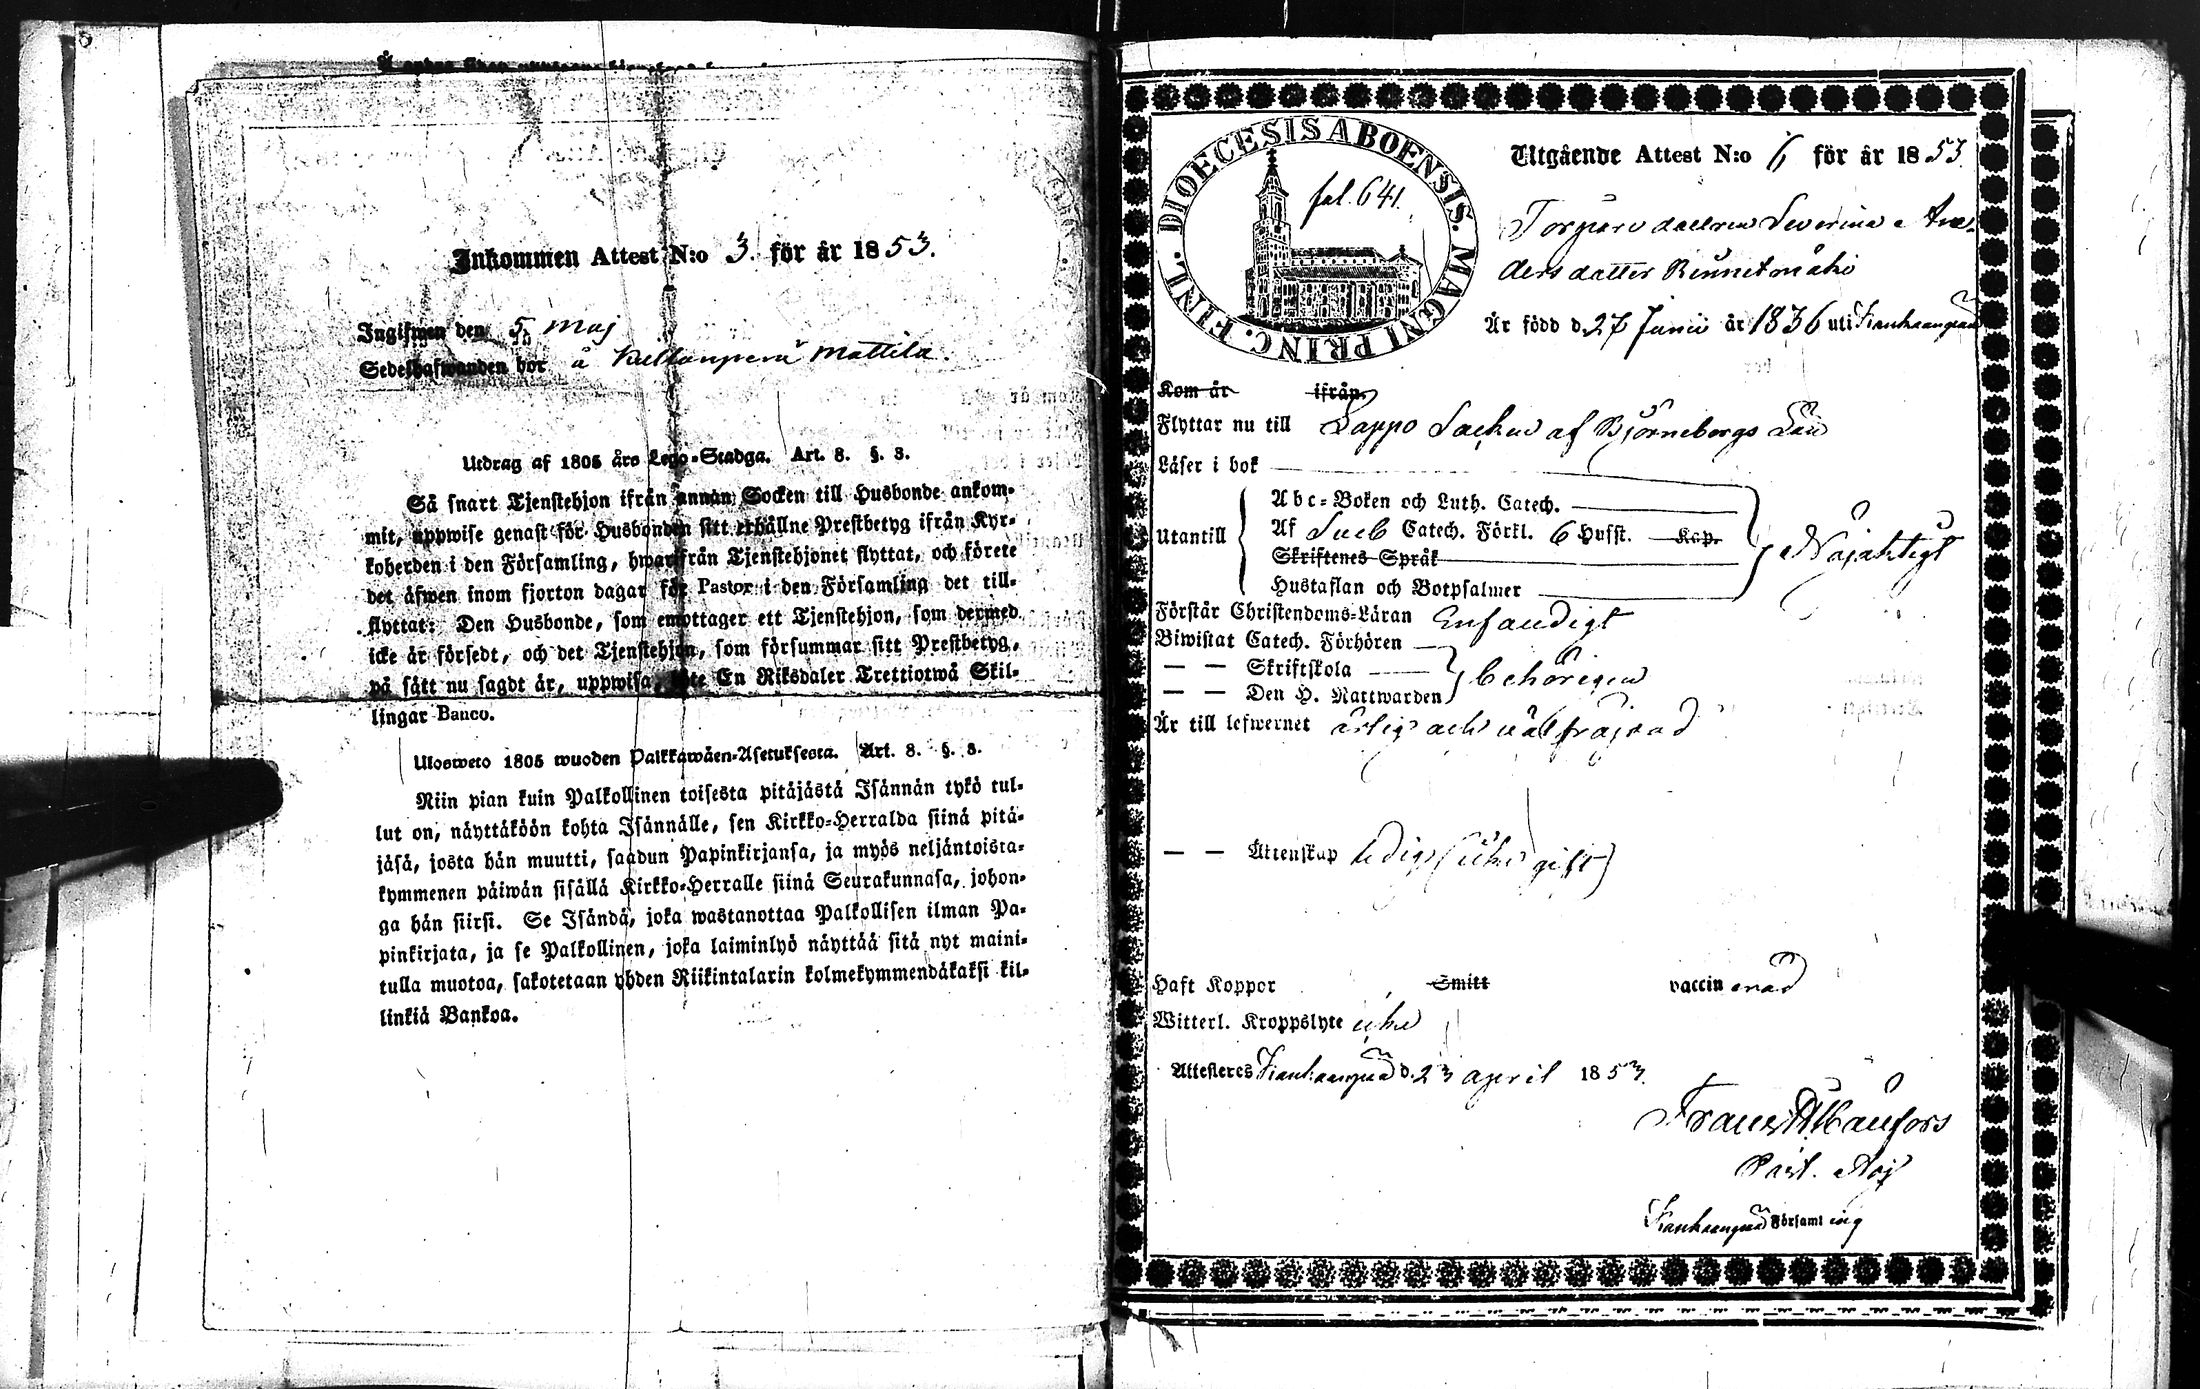 Inkommen Attest N:o 3. för år 1853.
Ingifwen den 5 Maj
Sedelhafwanden bor å Kullanperä Mattila.
Utdrag af 1805 års Lego-Stadga. Art. 8. §. 3.
Så snart Tjenstehjon ifrån annan Socken till Husbonde ankom-
mit, uppwise genast för Husbonden sitt erhållne Prestbetyg ifrån Kyr-
koherden i den Församling, hwarifrån Tjenstehjonet flyttat, och förete
det äfwen inom fjorton dagar för Pastor i den Församling det till-
flyttat: Den Husbonde, som emottager ett Tjenstehjon, som dermed
icke är försedt, och det Tjenstehjon, som försummar sitt Prestbetyg,
på sätt nu sagdt är, uppwisa, böte En Riksdaler Trettiotwå Skil-
lingar Banco.
Ulosweto 1805 wuoden Palkkawäen-Asetuksesta. Art. 8. §. 3.
Niin pian kuin Palkollinen toisesta pitäjästä Isännän tykö tul-
lut on, näyttäköön kohta Isännälle, sen Kirkko-Herralda siinä pitä-
jäsä, josta hän muutti, saadun Papinkirjansa, ja myös neljäntoista-
kymmenen päiwän sisällä Kirkko-Herralle siinä Seurakunnasa, johon-
ga hän siirsi. Se Isändä, joka wastanottaa Palkollisen ilman Pa-
pinkirjata, ja se Palkollinen, joka laiminlyö näyttää sitä nyt maini-
tulla muotoa, sakotetaan yhden Riikintalarin kolmekymmendäkaksi kil-
linkiä Bankoa.
FINL. DIOECESIS ABOENSIS. MAGNI PRINC.
fol. 641.
Utgående Attest N:o 6 för år 1853.
Torpare dottren Severina An-
dersdotter Rinnetmäki
Är född d. 27 Junii år 1836 uti Kankaanpää
Kom år ifrån
Flyttar nu till Lappo Socken af Björneborgs Län
Läser i bok
Utantill
Abc-Boken och Luth. Catech.
Af Sveb Catech. Förkl. 6 Hufst. Kap.
Skriftenes Språk
Hustaflan och Botpsalmer
Nöjaktigt
Förstår Christendoms-Läran Enfaldigt
Biwistat Catech. Förhören
— — Skriftskola
— — Den H. Nattwarden
behörigen
Är till lefwernet ärlig och välfräjdad
— — Ättenskap ledig (icke gift)
Haft Koppor Smitt vaccinerad
Witterl. Kroppslyte icke
Attesteres Kankaanpää d. 23 April 1853.
Past. Adj
Kankaanpää Församling